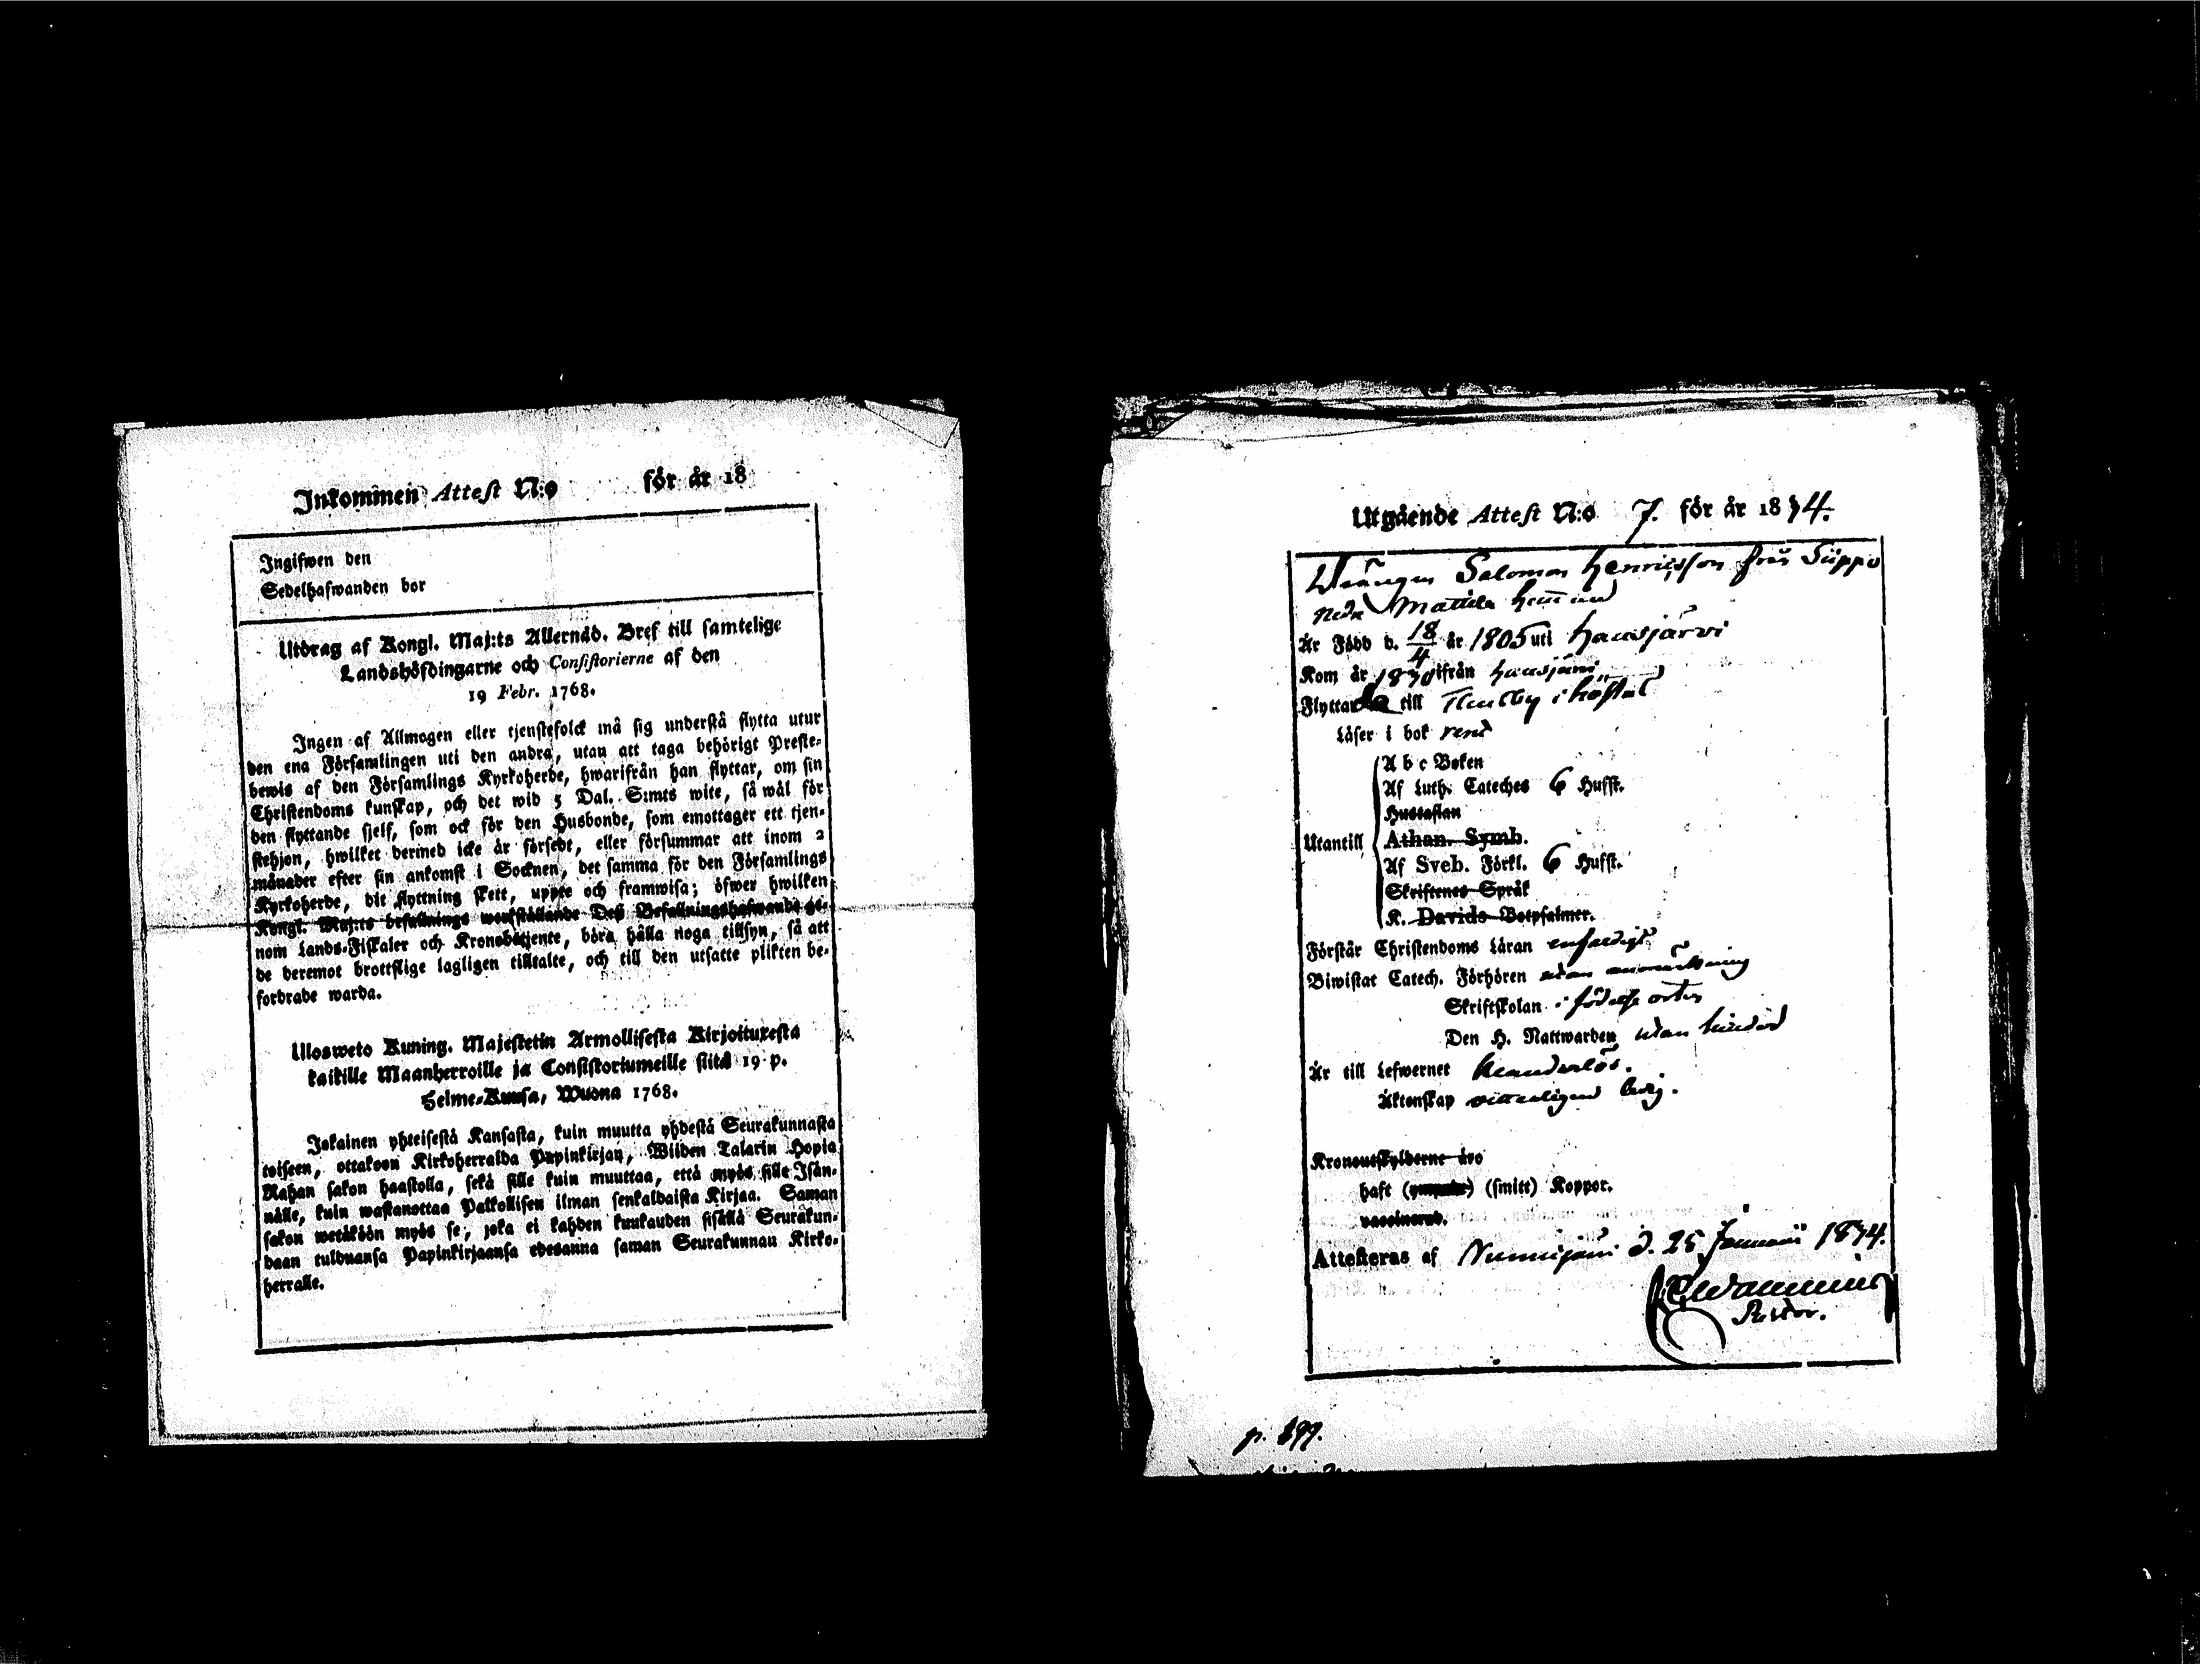 Inkommen Attest N:o för år 18
Ingifwen den
Sedelhafwanden bor
Utdrag af Kongl. Maj:ts Allernåd. Bref till samtelige
Landshöfdingarne och Consistorierne af den
19 Febr. 1768.
Ingen af Allmogen eller tjenstefolck må sig understå flytta utur
den ena Församlingen uti den andra, utan att taga behörigt Preste-
bewis af den Församlings Kyrkoherde, hwarifrån han flyttar, om sin
Christendoms kunskap, och det wid 5 Dal. S:mts wite, så wäl för
den flyttande sjelf, som ock för den Husbonde, som emottager ett tjen-
stehjon, hwilket dermed icke är försedt, eller försummar att inom 2
månader efter sin ankomst i Socknen, det samma för den Församlings
Kyrkoherde, dit flyttning skett, uppte och framwisa; öfwer hwilken
Kongl. Maj:ts befallnings werkställande Deß Befallningshafwande ge-
nom Lands-Fiskaler och Kronobetjente, böra hålla noga tillsyn, så att
de deremot brottslige lagligen tilltalte, och till den utsatte plikten be-
fordrade warda.
Ulosweto Kuning. Majestetin Armollisesta Kirjoituxesta
kaikille Maanherroille ja Consistoriumeille siitä 19 p.
Helme-Kuusa, Wuona 1768.
Jokainen yhteisestä Kansasta, kuin muutta yhdestä Seurakunnasta
toiseen, ottakoon Kirkoherralda Papinkirjan, Wiiden Talarin Hopia
Rahan sakon haastolla, sekä sille kuin muuttaa, että myös sille Isän-
nälle, kuin wastanottaa Palkollisen ilman senkaldaista Kirjaa. Saman
sakon wetäköön myös se, joka ei kahden kuukauden sisällä Seurakun-
daan tulduansa Papinkirjaansa edesanna saman Seurakunnan Kirko-
herralle.
Utgående Attest N:o 7. för år 1834.
Drängen Salomon Henricsson från Siippo
Mattila
Är Född d. 18/4 år 1805 uti Hausjärvi
Kom år 1830 ifrån Hausjärvi
Flyttar till i höstas
Läser i bok rent
Utantill
A b c Boken
Af Luth. Cateches 6 Hufst.
Hustaflan
Athan. Symb.
Af Sveb. Förkl. 6 Hufst.
Skriftenes Språk
K. Davids Botpsalmer.
Förstår Christendoms Läran enfaldigt
Biwistat Catech. Förhören utan anmärkning
Skriftskolan i födelse orten
Den H. Nattwarden utan hinder
Är till Lefwernet klanderlös.
Äktenskap vitterligen ledig.
Kronoutskylderne äro
haft () (smitt) Koppor.
vaccinerad.
Attesteras af Nurmijärvi d. 25 Januarii 1834.
Pastor.
p. 899.